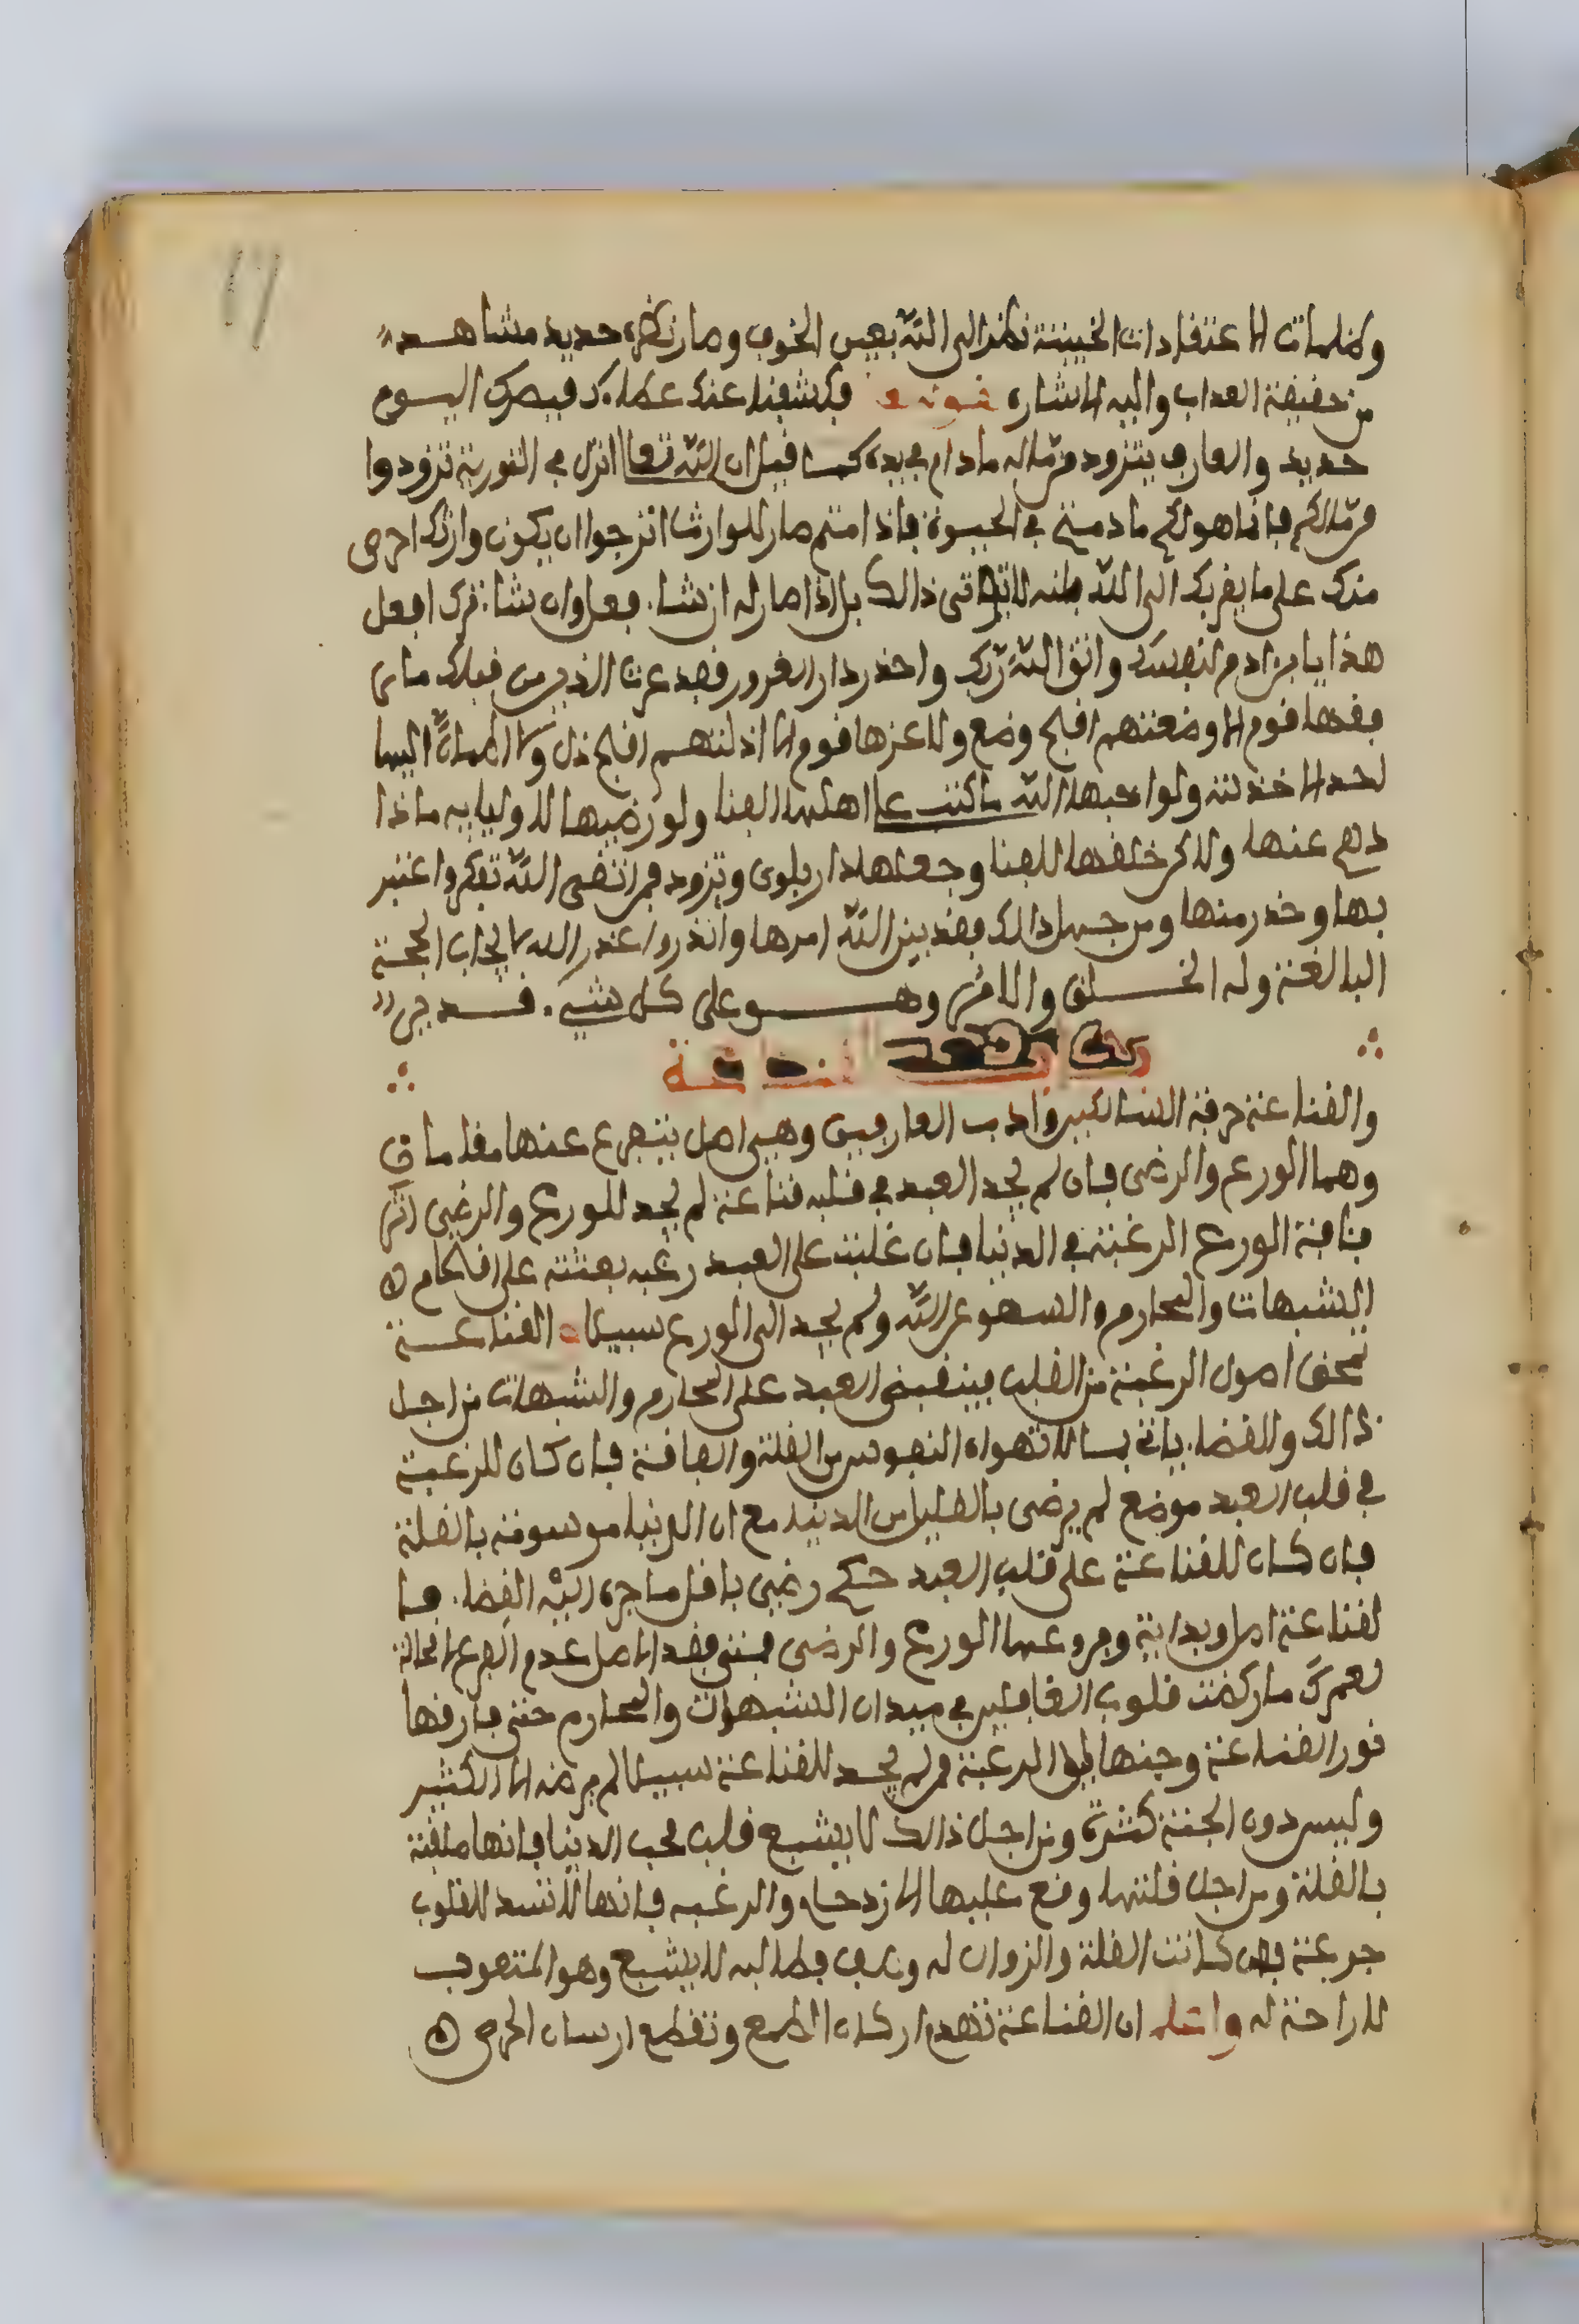 ١٧
وظلمات الاعتقادات الخبيثة نظر الى الله بعين الخوف وصار نظره حديد مشاهد
من حقيقة العذاب واليه الاشارة فكشفنا عنك غطاءك فبصرك اليوم
حديد والعارف يتزود من ماله مادام في يده كما قيل ان الله تعا انزل في التورية تزودوا
من مالكم فانما هو لكم ما دمتم في الحيوة فاذا متم صار للوارث اترجوا ان يكون وارثك احرص
منك على ما يقربك الى الله ذالك بل اذا صار له ان شاء فعل وان شاء ترك افعل
هذا يا بن ادم لنفسك واتق الله ربك واحذر دار الغرور فقد غرت الذين من قبلك ما
قوم الا وضعتهم اقبح وضع ولا عزها قوم الا اذلتهم اقبح ذل ولا اطمان اليها
احد الا خذلته ولو احبها الله ما كتب على اهلها الفنا ولو رضيها لاوليايه ما
عنها ولاكن خلقها للفنا وجعلها دار بلوى وتزود الله تفكر واعتبر
بها وحذر منها ومن جهل ذالك فقد بين الله امرها وانذر الحجة
البالغة وله الخلق والامر وهو على كل شيء قدير
والقناعة حرفة واداب العارفين وهي اصل يتفرع عنها مقامات
وهما الورع والرضى فان لم يجد العبد في قلبه قناعة لم يجد للورع والرضى اثر
الورع الرغبة في الدنيا فان غلبت على العبد رغبه بعثته على
الشبهات والمحارم والسهو عن الله ولم يجد الى الورع سبيلا القناعة
تمحق اصول الرغبة من القلب فينقبض العبد على المحارم والشبهات من اجل
ذالك والقضاء ياتي بما لا تهواه النفوس من القلة والفاقة فان كان للرغبة
في قلب العبد موضع لم يرضى بالقليل من الدنيا مع ان الدنيا موسومة بالقلة
فان كان للقناعة على قلب العبد حكم رضي باقل ما جره اليه القضاء فا
لقناعة اصل وبداية وفروعها الورع والرضى فمتى فقد الاصل عدم الفرع لامحالة
لعمرك ما ركضت قلوب الغافلين في ميدان الشبهات والمحارم حتى فارقها
نور القناعة الرغبة فمن لم يجد للقناعة سبيلا لم يرضه الا الكثير
وليس دون الجنة كثرة ومن اجل ذالك لا يشبع قلب محب الدنيا فانها
بالقلة ومن اجل قلتها وقع عليها الازدحام والرغبه فانها لا تسد للقلوب
جوعة فمن كانت القلة والزوال له وصف فطالبه لا يشبع وهو المتعوب
لا راحة له واعلم ان القناعة تهدم اركان الطمع وتقطع ارسان الحرص